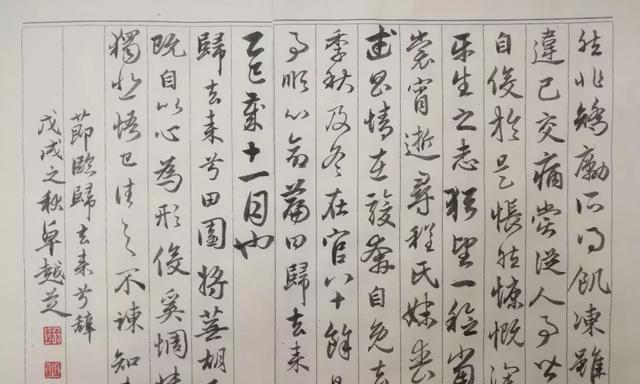 然非矯勵所得飢凍雖
違己交病嘗從人事皆
自役於是悵然慷慨深
平生之志猶望一稔當
裳宵逝尋程氏妹喪
武昌情在駿奔自免去
季秋及冬在官八十餘日
事順心命篇曰歸去來
乙巳歲十一月也
歸去來兮田園將蕪胡不
既自以心為形役奚惆悵
獨悲悟已往之不諫知來
節臨歸去來兮辭
戊戌之秋卓越芝